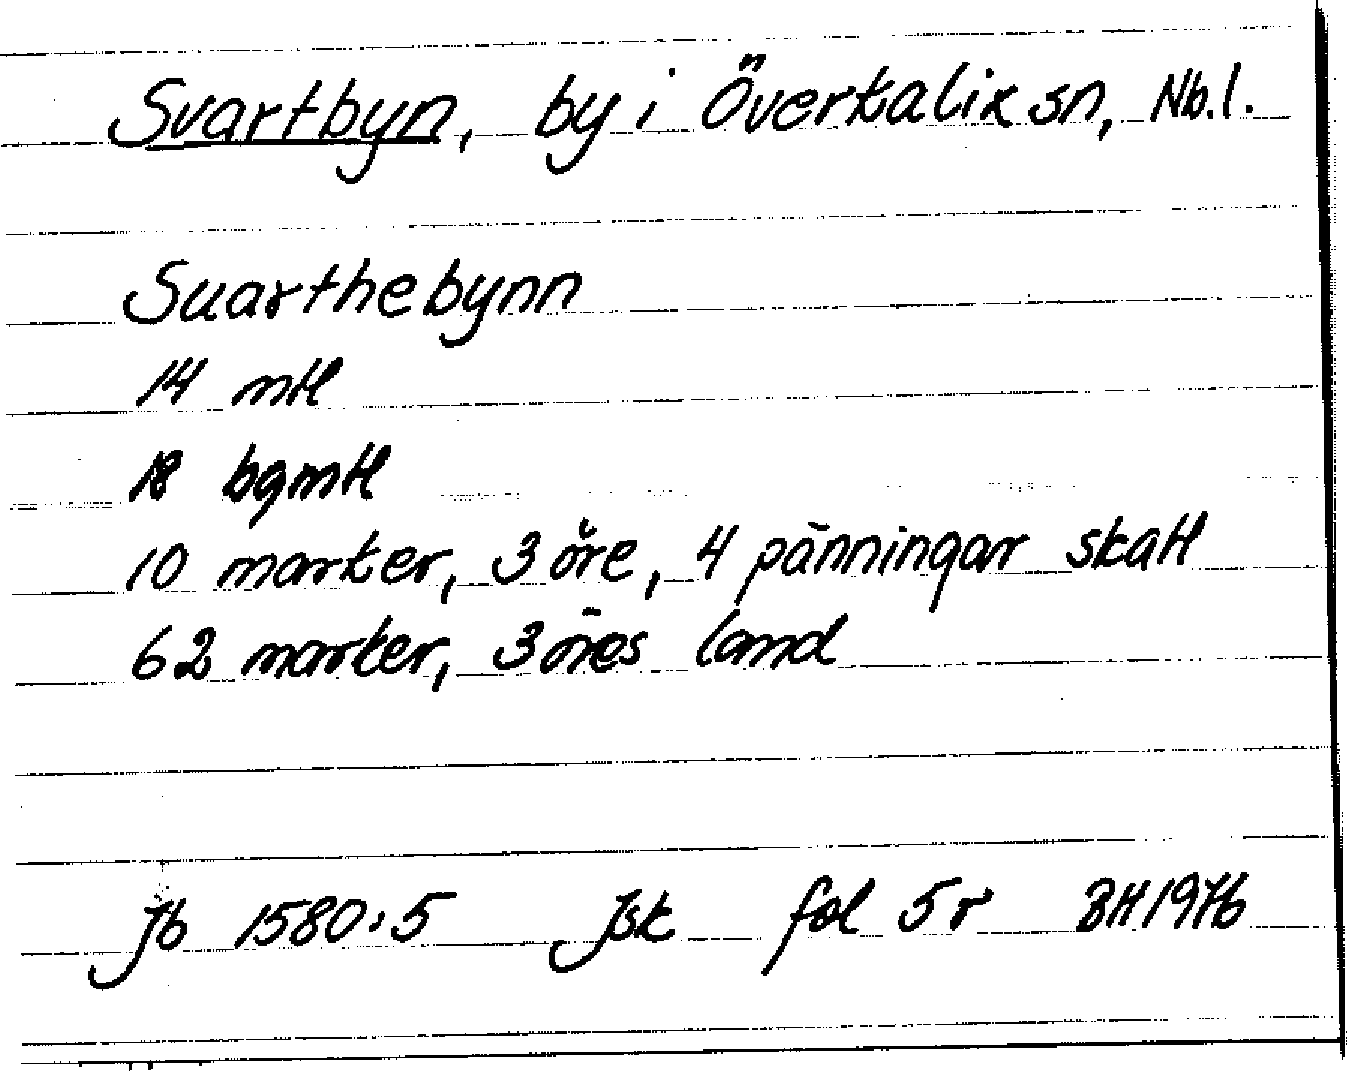 Svartbyn, by i Överkalix sn, Nb.l.
Suarthebynn
14 mtl
18 bgmtl
10 marker, 3 öre, 4 pänningar skatt
62 marker, 3 öres land
Jb 1580:5 Jsk fol 5 r BH 1976